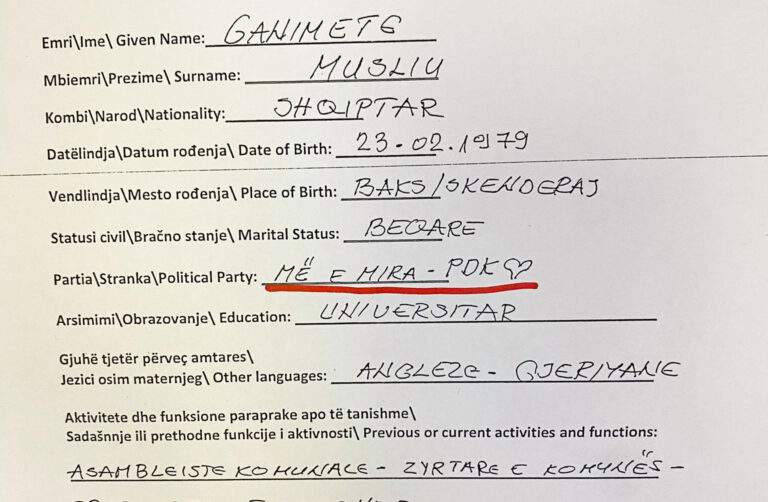 Emri\Ime\ Given Name: GANIMETE
Mbiemri\Prezime\ Surname: MUSLIU
Kombi\Narod\Nationality: SHQIPTAR
Datëlindja\Datum rođenja\ Date of Birth: 23-02.1979
Vendlindja\Mesto rođenja\ Place of Birth: BAKS/SKENDERAJ
Statusi civil\Bračno stanje\ Marital Status: BEQARE
Partia\Stranka\Political Party: MË E MIRA - PDK
Arsimimi\Obrazovanje\ Education: UNIVERSITAR
Gjuhë tjetër përveç amtares\
Jezici osim maternjeg\ Other languages: ANGLEZE - GJERMANE
Aktivitete dhe funksione paraprake apo të tanishme\
Sadašnnje ili prethodne funkcije i aktivnosti\ Previous or current activities and functions:
ASAMBLEISTE KOMUNALE - ZYRTARE E KOMUNËS -